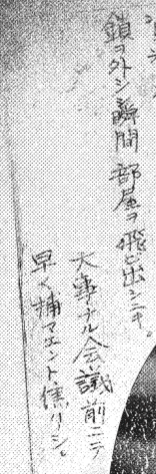 鎖ヲ外シシ瞬間部屋ヲ飛ビ出シニキ。
大事ナル会議前ニテ
早ク捕マエント焦リシ。